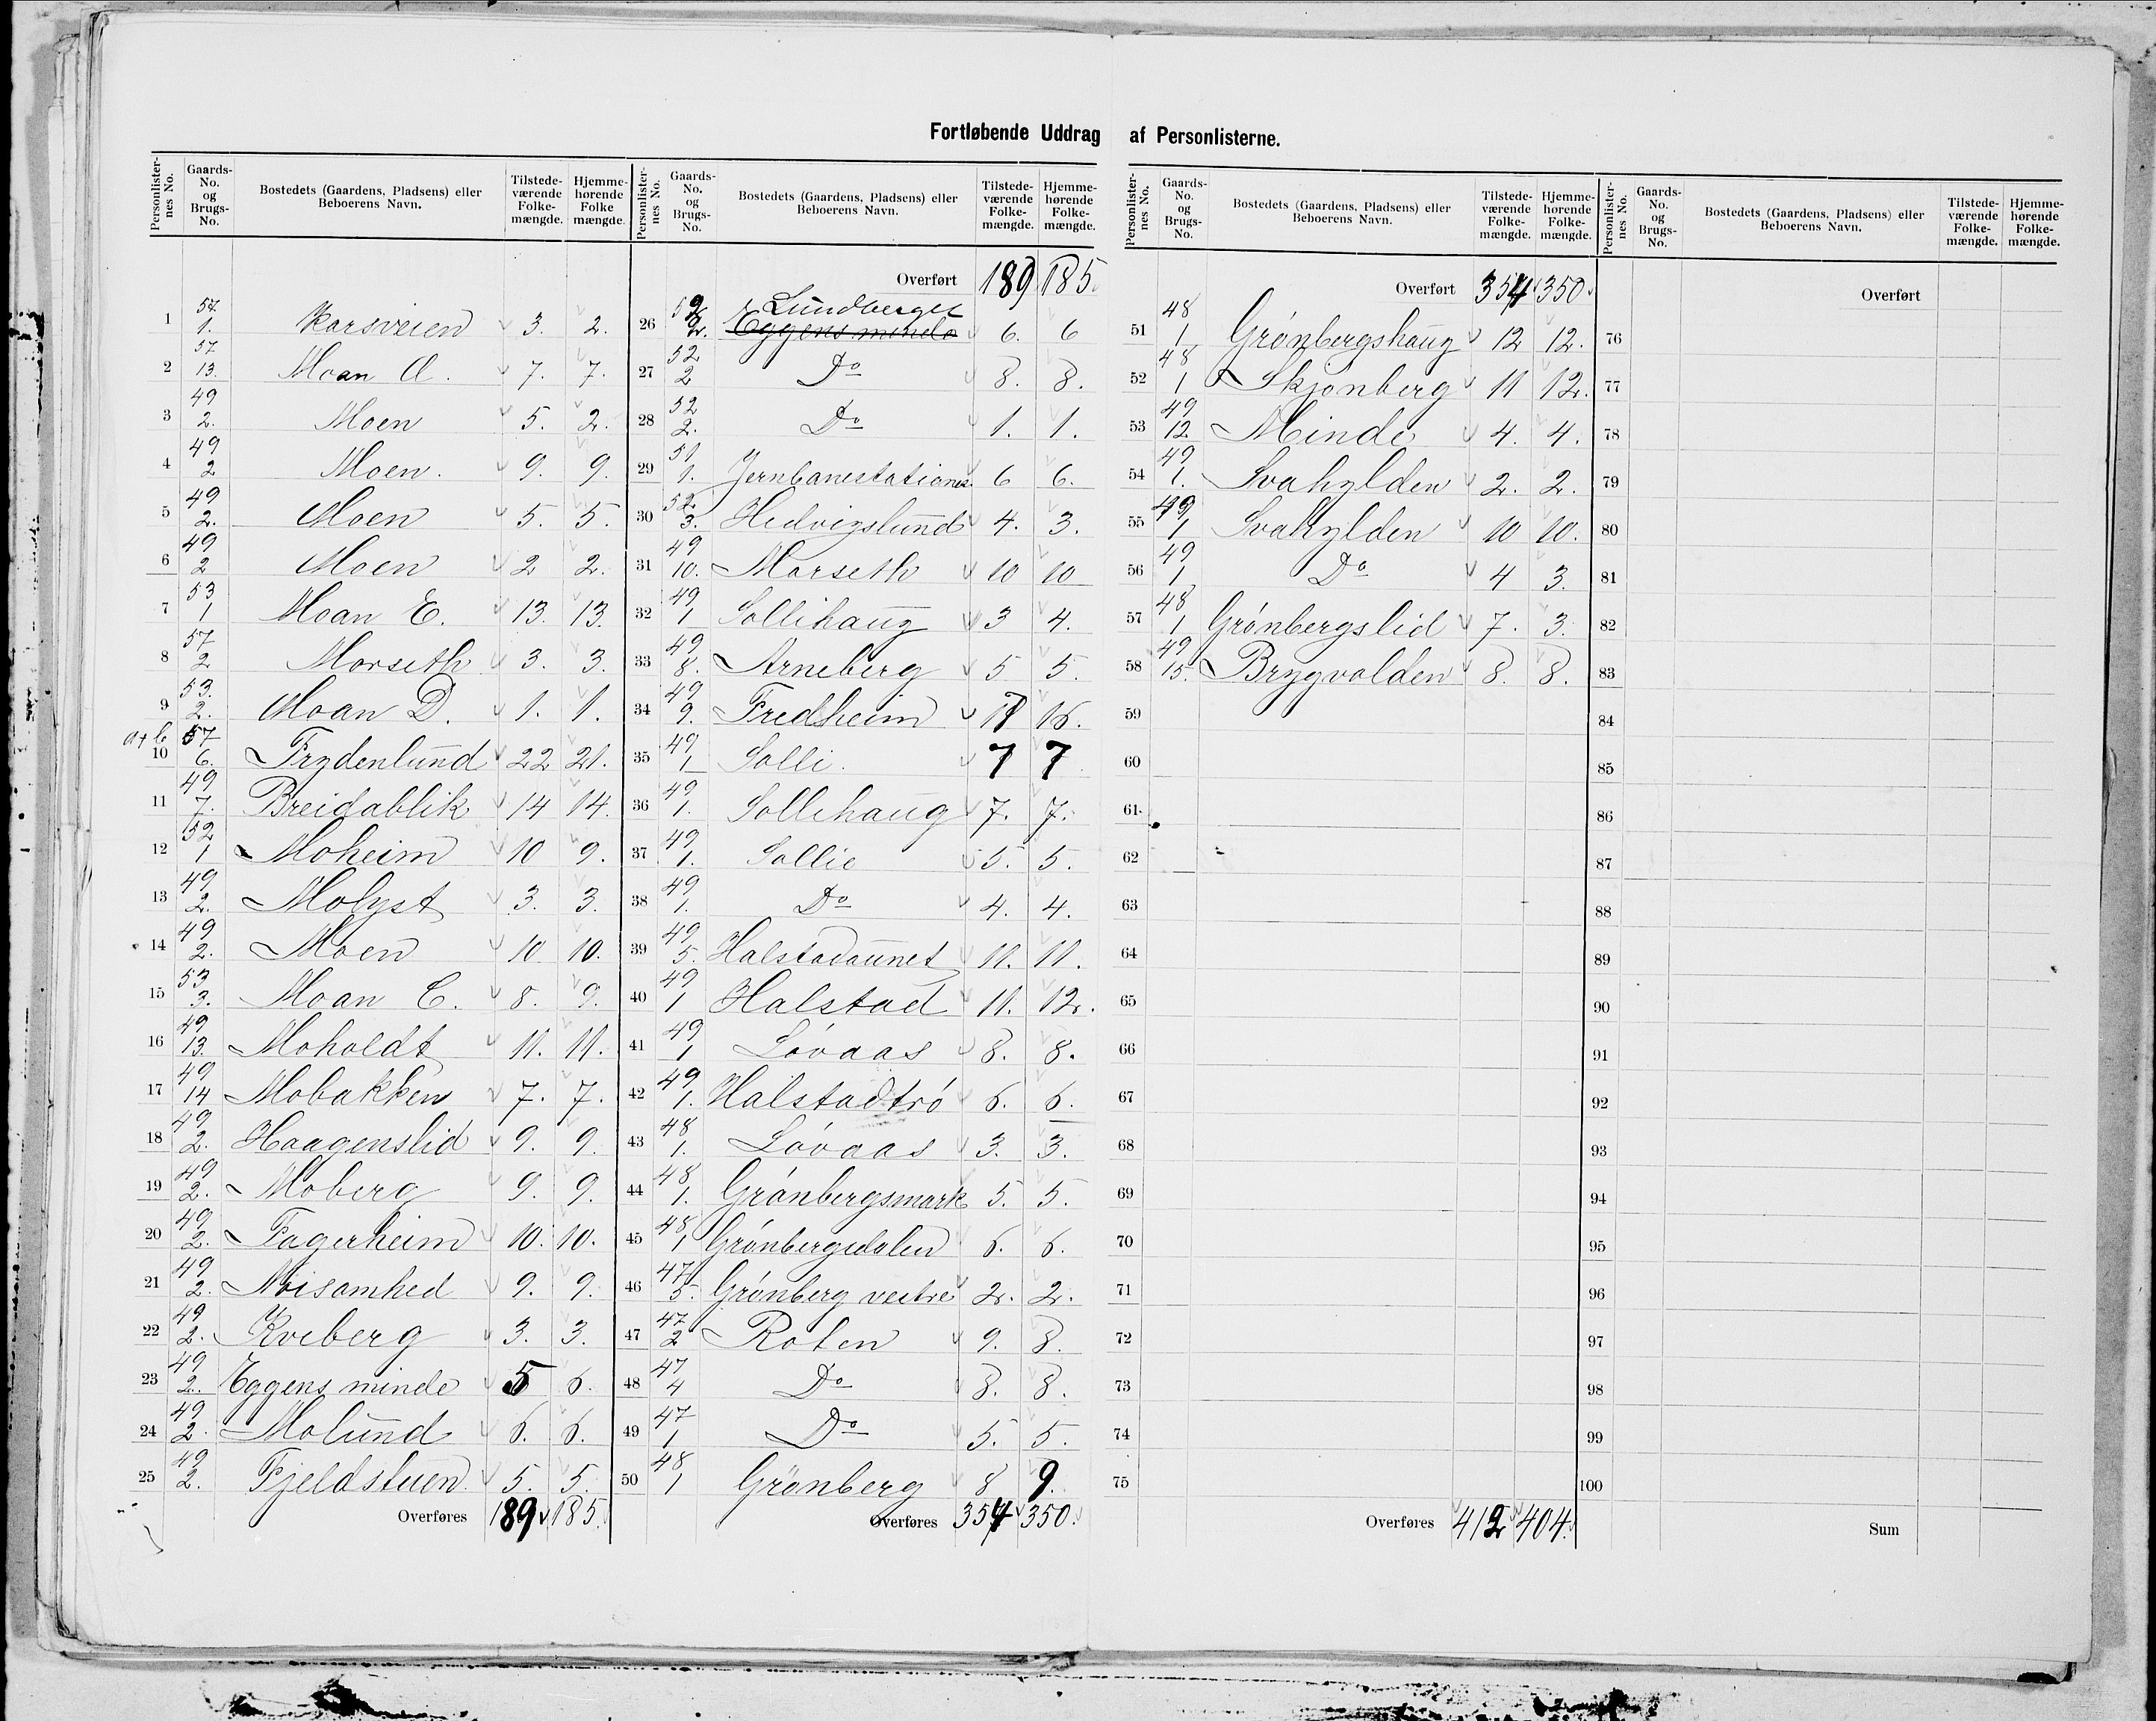 Fortløbende Uddrag af Personlisterne.
Personlister-nes No. Gaards-No. og Brugs-No. Bostedets (Gaardens, Pladsens) eller Beboerens Navn. Tilstede-værende Folke-mængde. Hjemme-hørende Folke mængde.
1 57/1. Karsveien 3. 2.
2 57/13. Moan A. 7. 7.
3 49/2. Moen 5. 2.
4 49/2 Moen. 9. 9.
5 49/2. Moen 5. 5.
6 49/2 Moen 2 2.
7 53/1 Moan E. 13. 13.
8 57/2 Morseth 3. 3.
9 53./2. Moan D. 1. 1.
a+b
10 57/6. Frydenlund 22 21.
11 49/7. Breidablik 14 14.
12 52/1 Moheim 10 9.
13 49/2. Molyst 3. 3.
14 49/2. Moen 10 10.
15 53/3. Moan C. 8. 9.
16 49/13. Moholdt 11. 11.
17 49/14 Mobakken 7. 7.
18 49/2. Haagenslid 9. 9.
19 49/2. Moberg 9. 9.
20 49/2. Fagerheim 10. 10.
21 49/2. Noisomhed 9. 9.
22 49/2. Kveberg 3. 3.
23 49/2. Eggens minde 5 6.
24 49/2. Molund 6. 6.
25 49/2. Fjeldstuen 5. 5.
Overføres 189 185.
Personlister-nes No. Gaards-No. og Brugs-No. Bostedets (Gaardens, Pladsens) eller Beboerens Navn. Tilstede-værende Folke-mængde. Hjemme-hørende Folke-mængde.
Overført 189 185.
Lundberget
26 Eggens minde 6. 6
27 52/2 Do 8. 8.
28 52/2. Do 1. 1.
29 51/1. Jernbanestationen 6 6.
30 52./3. Hedvigslund 4. 3.
31 49/10. Morseth 10 10
32 49/1 Sollihaug 3 4.
33 49/8. Arneberg 5 5.
34 49/9. Fredheim 16.
35 49/1 Solli. 7 7
36 49/1. Sollihaug 7. 7.
37 49/1. Sollie 5. 5.
38 49/1. Do 4. 4.
39 49/5. Halstadaunet 11. 11.
40 49/1 Halstad 11. 12.
41 49/1 Løvaas 8. 8.
42 49/1. Halstadtrø 6. 6.
43 48/1. Løvaas 3. 3.
44 48/1. Grønbergsmark 5. 5.
45 48/1 Grønbergsdalen 6. 6.
46 47/5. Grønberg vestre 2. 2.
47 47/2 Roten 9. 8.
48 47/4 Do 8. 8.
49 47/1 Do 5. 5.
50 48/1 Grønberg 8 9.
Overføres 354 350.
Personlister-nes No. Gaards-No. og Brugs-No. Bostedets (Gaardens, Pladsens) eller Beboerens Navn. Tilstede-værende Folke-mængde. Hjemme-hørende Folke-mængde.
Overført 354 350.
51 48/1 Grønbergshaug 12 12.
52 48/1 Skjønberg 11 12.
53 49/12. Minde 4. 4.
54 49/1. Svahylden 2. 2.
55 49/1 Svahylden 10 10.
56 49/1 Do 4 3.
57 48/1 Grønbergslid 7. 3.
58 49/15. Brygvolden 8. 8.
59
60
61
62
63
64
65
66
67
68
69
70
71
72
73
74
75
Overføres 412 404.
Personlister-nes No. Gaards-No. og Brugs-No. Bostedets (Gaardens, Pladsens) eller Beboerens Navn. Tilstede-værende Folke-mængde. Hjemme-hørende Folke-mængde.
Overført
76
77
78
79
80
81
82
83
84
85
86
87
88
89
90
91
92
93
94
95
96
97
98
99
100
Sum